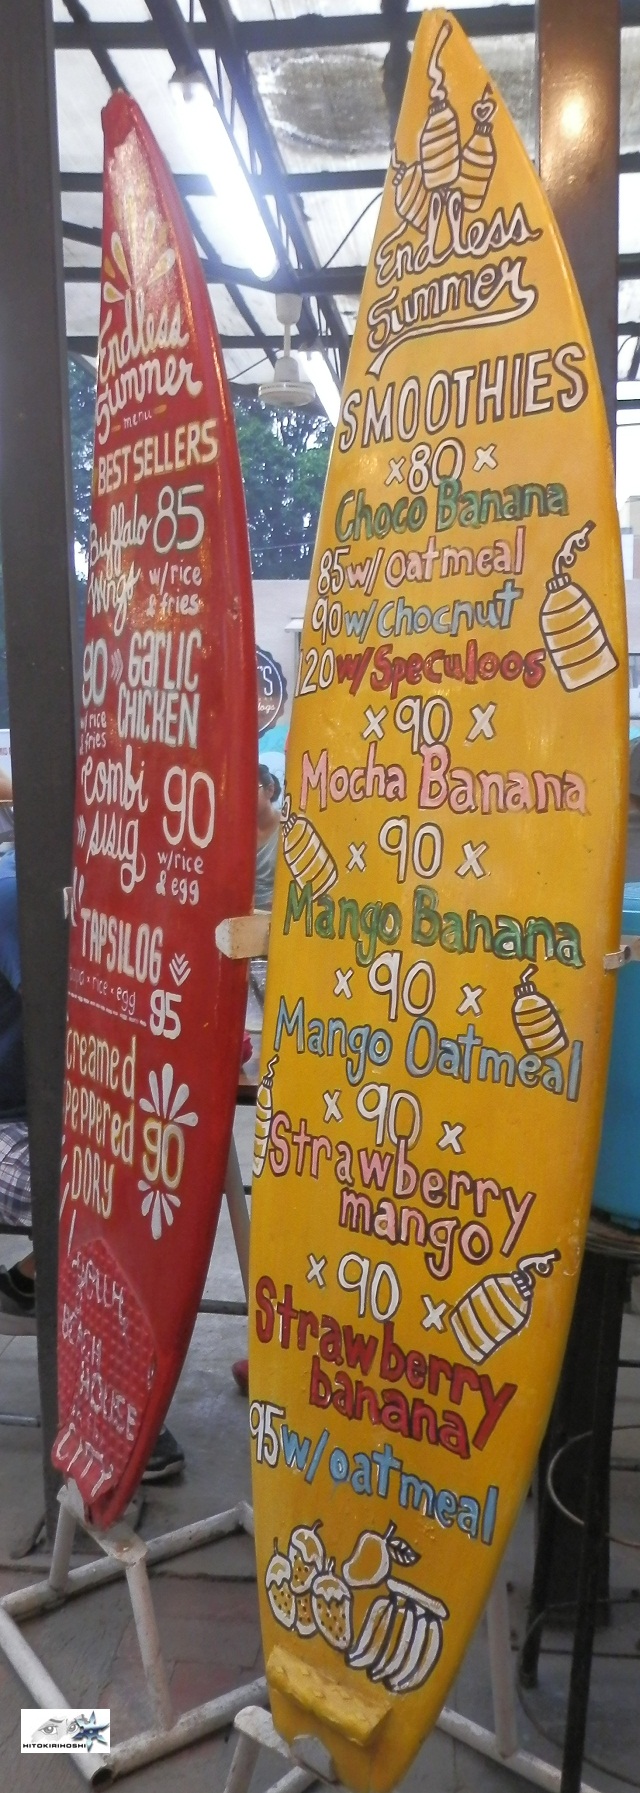 Endless
Summer
menu
BEST SELLERS
Buffalo 85
Wings w/rice
& fries
90 » GARLIC
w/rice CHICKEN
& fries
Combi 90
» sisig w/rice
& egg
TAPSILOG
rice × egg 95
creamed
peppered 90
DORY
your
BEACH
HOUSE
CITY
Endless
Summer
SMOOTHIES
x 80 x
Choco Banana
85 w/ oatmeal
90 w/ Chocnut
120 w/ Speculoos
x 90 x
Mocha Banana
x 90 x
Mango Banana
x 90 x
Mango Oatmeal
x 90 x
Strawberry
mango
x 90 x
Strawberry
banana
95 w/ oatmeal
HITOKIRIHOSHI